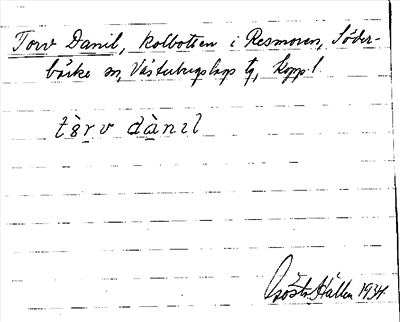 Torv Danil, kolbotten i Resmoren, Söder-
bärke sn, Västerbergslags tg, Kopp. l.
tɞ̀r̥v dànıl
Gösta Hållen 1934.